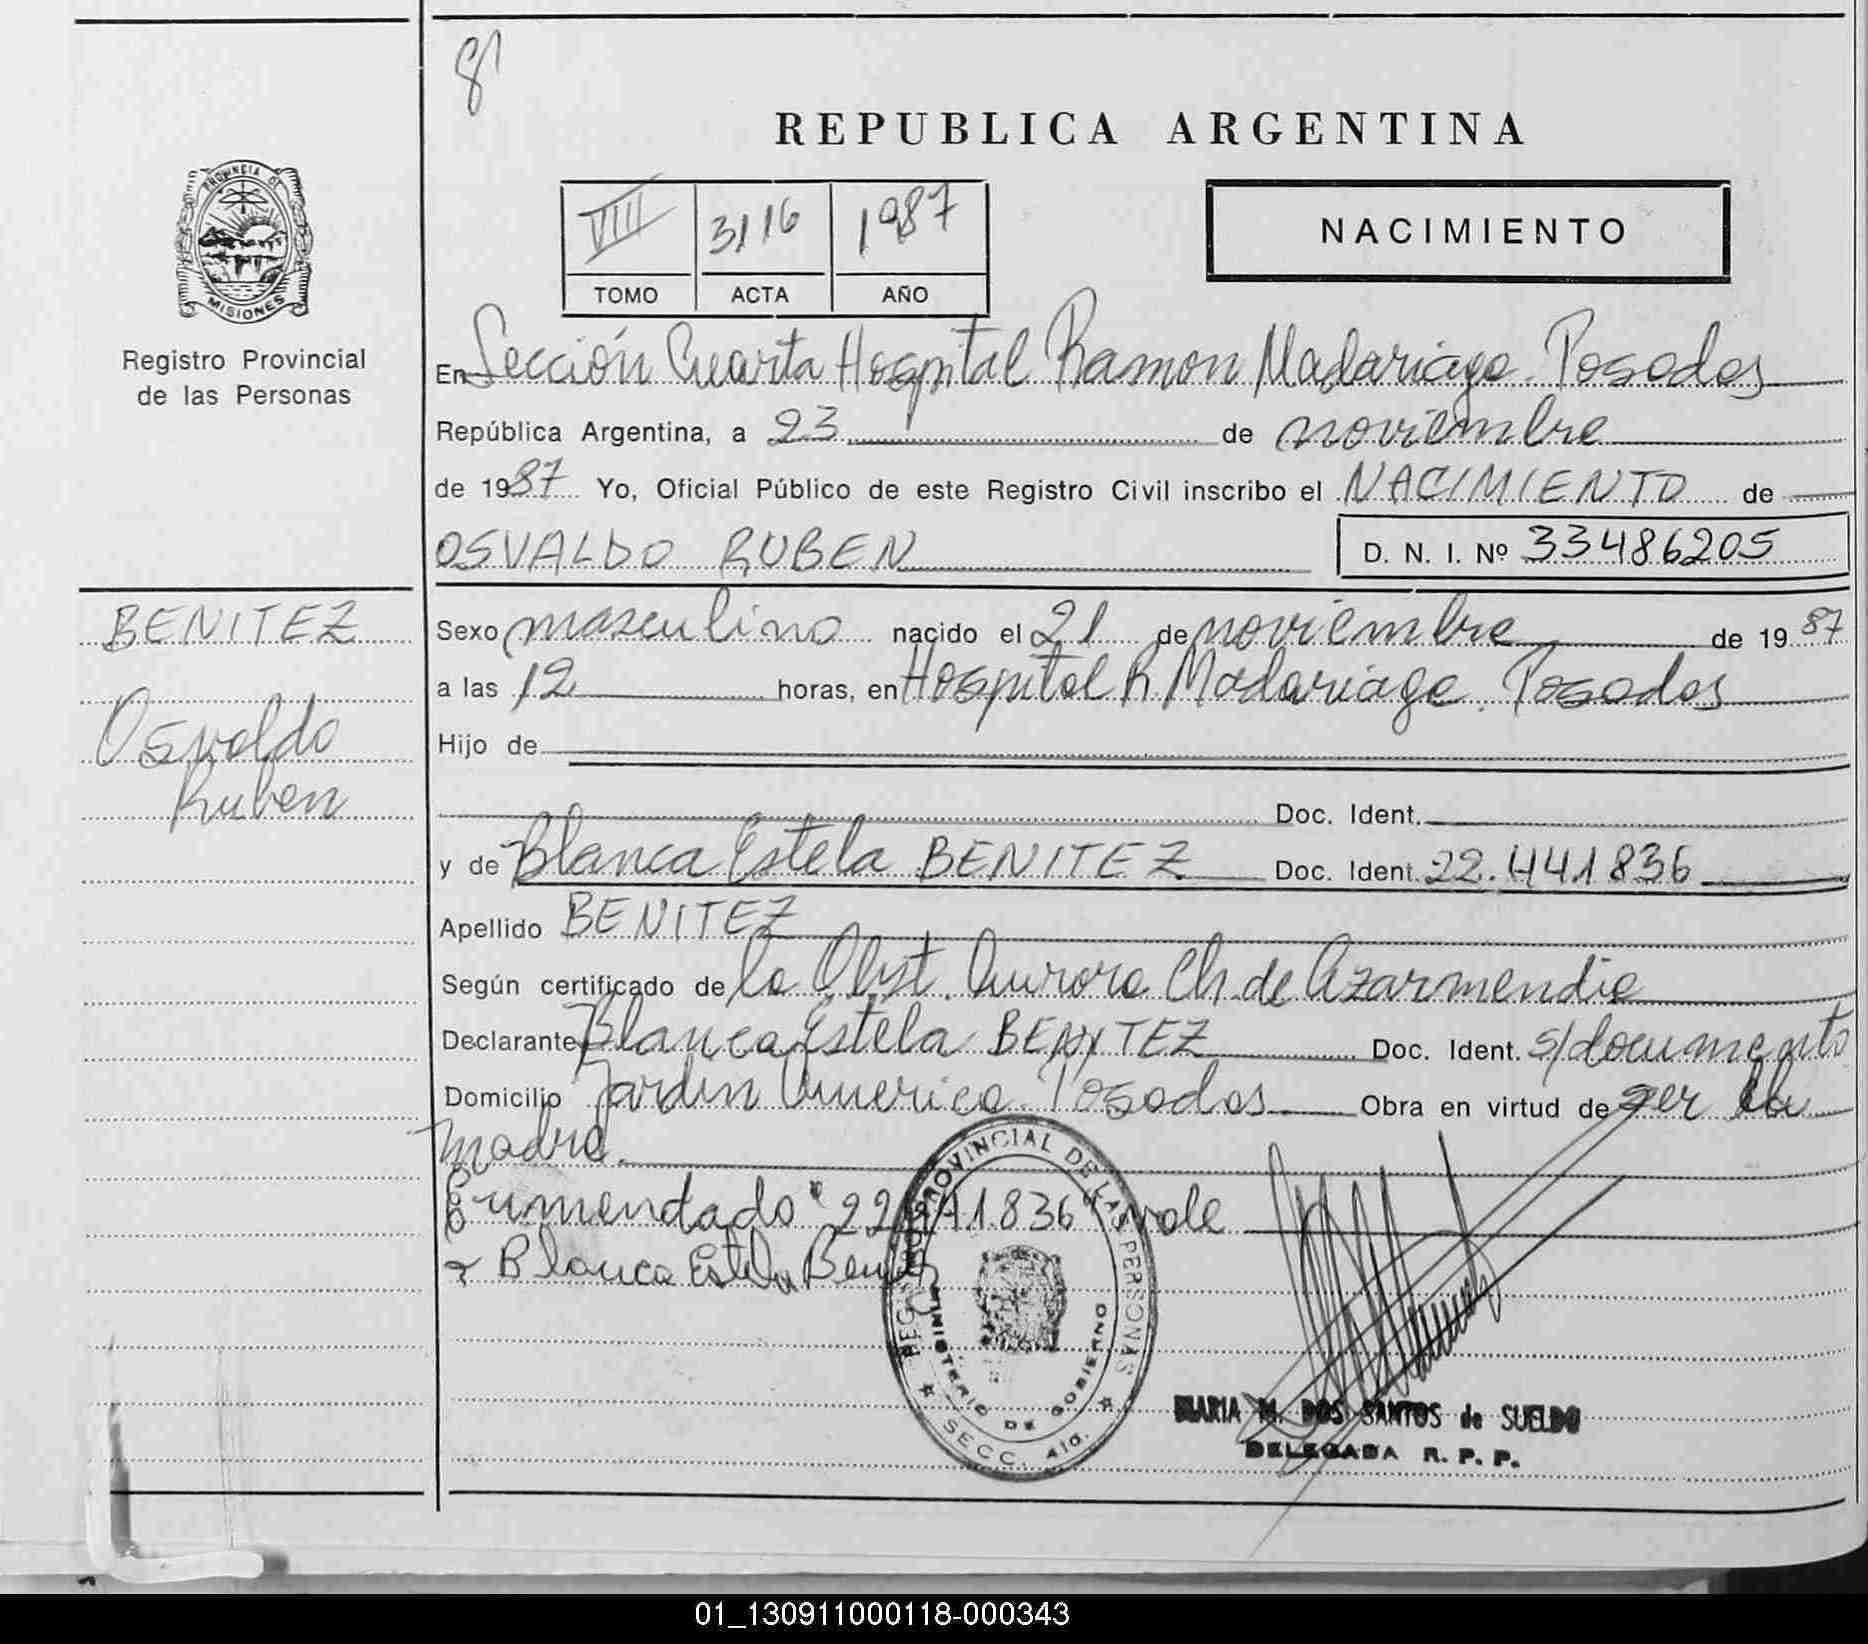 8
REPUBLICA ARGENTINA
PROVINCIA DE
MISIONES
Registro Provincial
de las Personas
VIII 3116 1987
TOMO ACTA AÑO
NACIMIENTO
En Sección Cuarta Hospital Ramon Madariaga. Posadas
República Argentina, a 23 de noviembre
de 1987 Yo, Oficial Público de este Registro Civil inscribo el NACIMIENTO de
OSVALDO RUBEN D. N. I. Nº 33486205
BENITEZ
Osvaldo
Ruben
Sexo masculino nacido el 21 de noviembre de 1987
a las 12 horas, en Hospital R. Madariaga. Posadas
Hijo de
Doc. Ident.
y de Blanca Estela BENITEZ Doc. Ident. 22.441836
Apellido BENITEZ
Según certificado de la Obst. Aurora Ch. de Azarmendia
Declarante Blanca Estela BENITEZ Doc. Ident. s/documento
Domicilio Jardin America. Posadas Obra en virtud de ser la
madre.
Enmendado "22.441.836" vale
Blanca Estela Benitez
REGISTRO PROVINCIAL DE LAS PERSONAS
MINISTERIO DE GOBIERNO
SECC. 4ta.
MARIA M. DOS SANTOS de SUELDO
DELEGADA R. P. P.
01_130911000118-000343